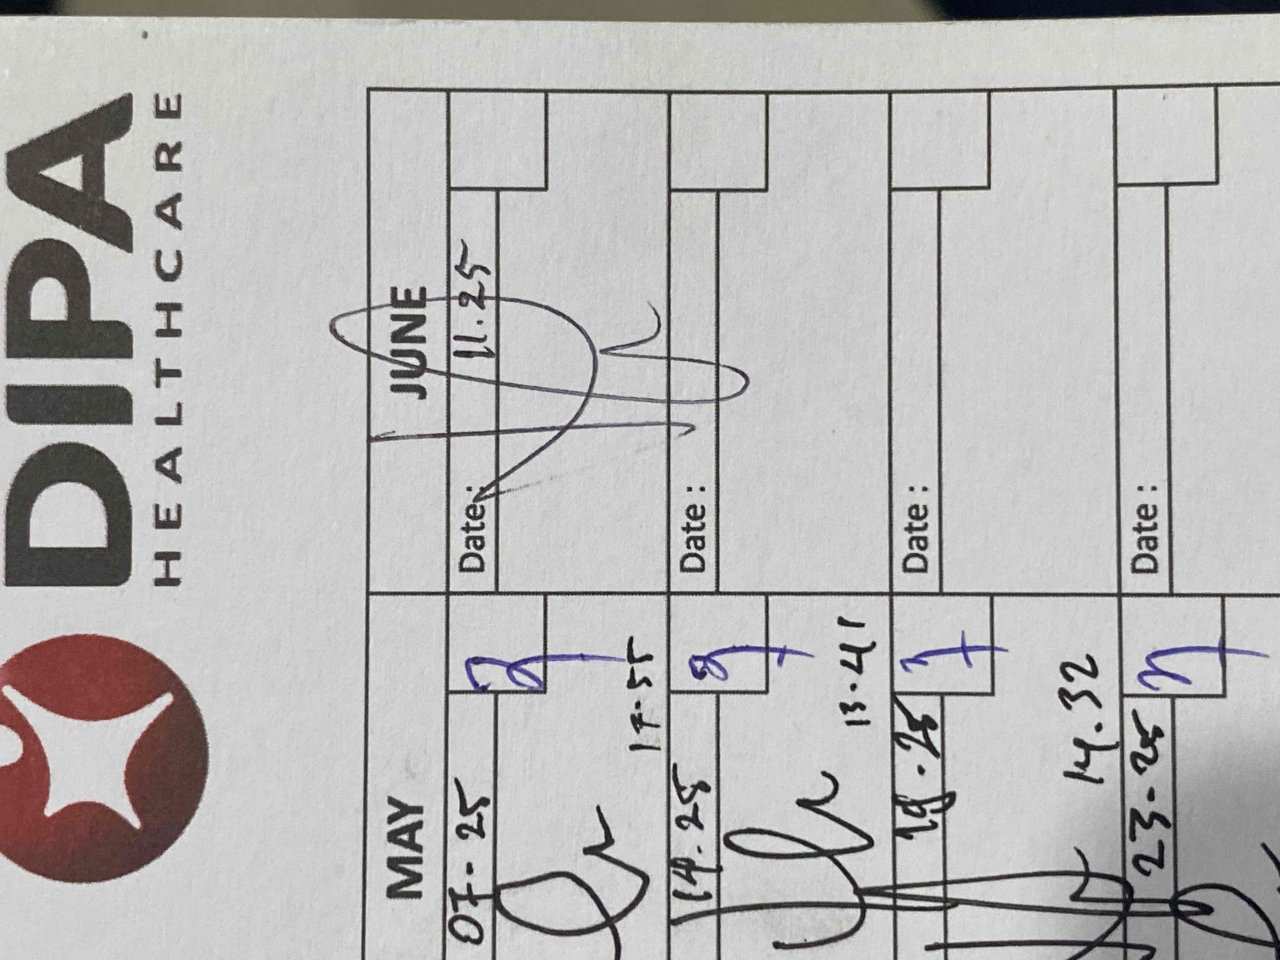 DIPA
HEALTHCARE
MAY
JUNE
07-25
Date:
11.25
17-55
14.25
Date :
13.41
19.25
Date :
14.32
23-25
Date :